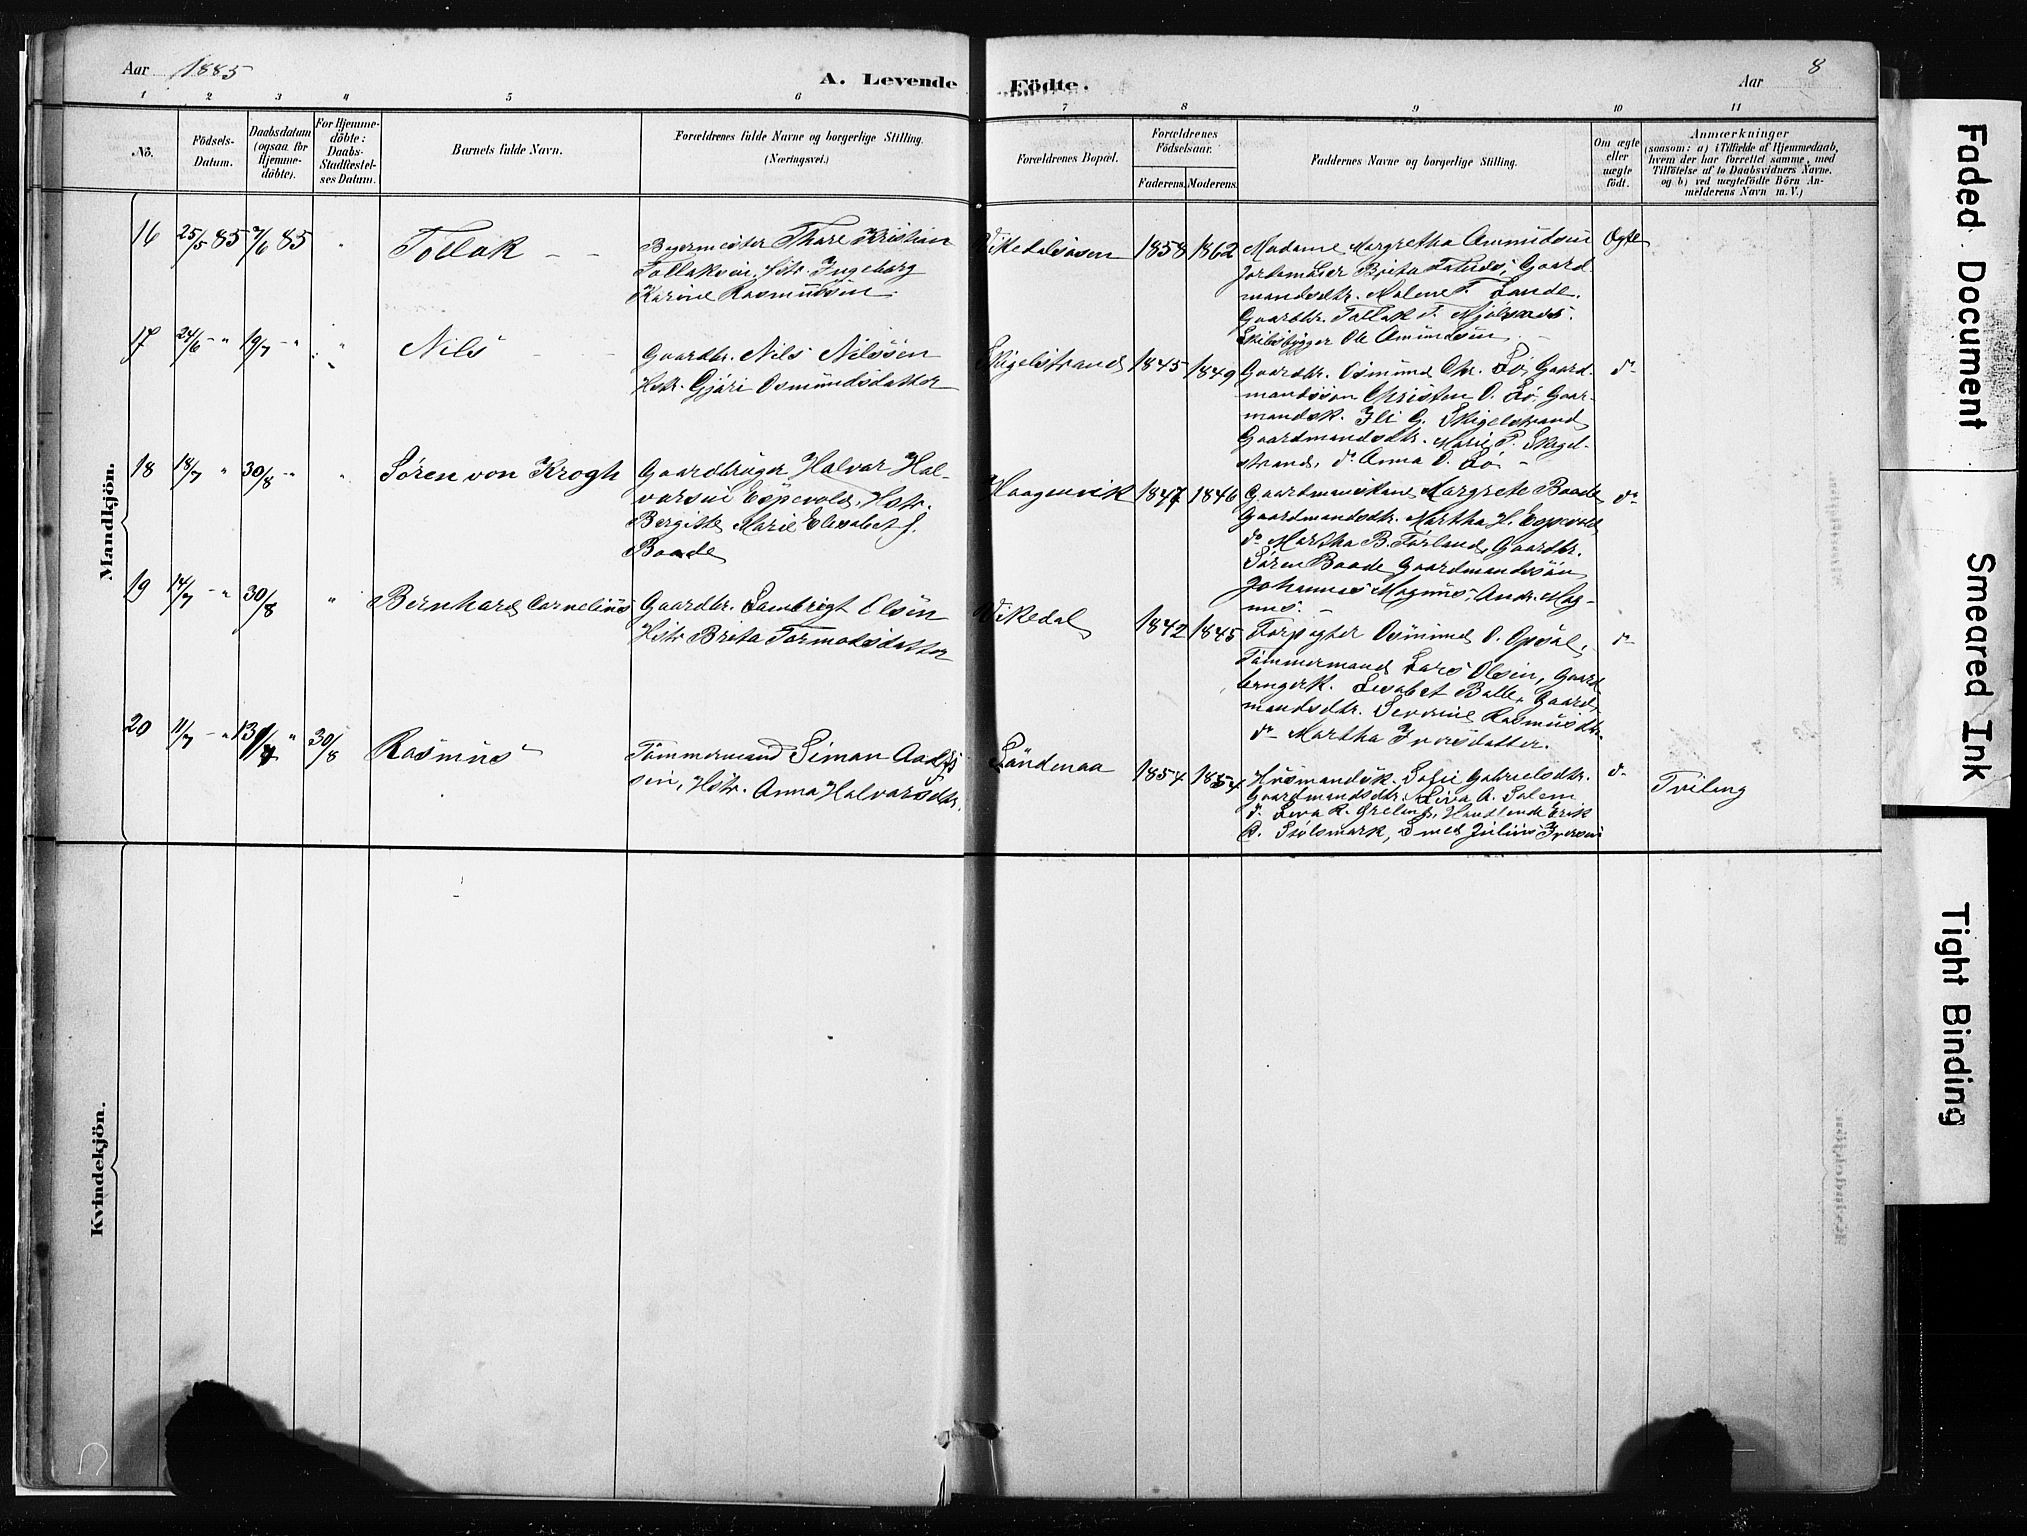 Aar 1885
A. Levende Födte.
Aar
8
1 2 3 4 5 6 7 8 9 10 11
No.
Födsels-Datum.
Daabsdatum (ogsaa for Hjemme-döbte).
For Hjemme-döbte: Daabs-Stadfæstel-ses Datum.
Barnets fulde Navn.
Forældrenes fulde Navne og borgerlige Stilling. (Næringsvei.)
Forældrenes Bopæl.
Forældrenes Födselsaar.
Faderens. Moderens.
Faddernes Navne og borgerlige Stilling.
Om ægte eller uægte født.
Anmærkninger
(saasom: a) i Tilfælde af Hjemmedaab,
hvem der har forrettet samme, med
Tilföielse af to Daabsvidners Navne,
og b) ved uægtefödte Börn An-
melderens Navn m. V.)
Mandkjön.
16 25/5 85 7/6 85 " Tollak
Thore Kristian
Tollaksen, Hstr. Ingeborg
Karine Rasmusdtr.
Vikedalsosen 1858 1862
Madame Margretha Amundsen
Jordemoder Brita Gaard
mandsdtr. Malene T. Lande.
Gaardbr. Tollak T. Mjølsnes.
Skibsbygger Ole Amundsen
Ægte
17 24/6 - " 19/7 - " " Nils
Gaardbr. Nils Nilssen
Hstr. Gjøri Osmundsdatter
Skigelstrand 1845 1849
Gaardbr. Osmund Chr. Lø, Gaard
mandssøn Christen O. Lø, Gaar-
mandsk. Ili G. Skigelstrand
Gaardmandsdtr. Marie P. Skigel-
strand, do Anna O. Lø -
do
18 18/7 " 30/8 - " " Søren von Krogh
Gaardbruger Halvar Hal-
varsen Espevold, Hstr.
Bergitte Marie Elisabet S.
Baade
Haagenvik 1847 1846
Margrete Baade
Gaardmandsdtr. Martha H. Espevold
do Martha B. Førland, Gaardbr.
Søren Baade Gaardmandssøn
Johannes Magnus, Andr. Mag-
nus. -
do
19 14/7 - " 30/8 " Bernhard Cornelius
Gaardbr. Lambrigt Olsen
Hstr Brita Tormodsdatter
Vikedal 1842 1845
Forpagter Osmund O. Opsal,
Tømmermand Lars Olsen, Gaard
brugerk. Lisabet Balle, Gaard-
mandsdtr. Severine Rasmusdtr.
do Martha Iversdatter.
do
20 11/7 - " 13/7 " 30/8 Rasmus
Tømmermand Simon
sen, Hstr. Anna Halvarsdtr.
Søndenaa 1854 1854
Husmandsk. Sofie Gabrielsdtr.
Gaardmandsdtr. Siva A. Salem
do Handlende Erik
Stølsmark, Smed Julius Iversen
do
Tviling
Kvindekjön.
Faded Document
Smeared Ink
Tight Binding